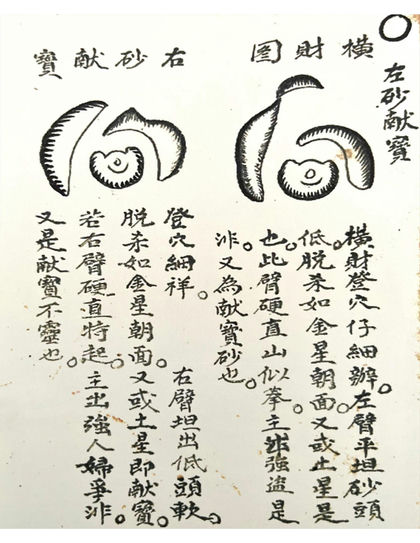 左砂献寳
橫財图
橫財登穴仔細辦。左臂平坦砂頭
低脱杀如金星朝面。又或土星是
也。此臂硬直山似拳。主強盗是
非。又為献寳砂也。
右砂献寳
登穴細祥。右臂坦出低頭軟。
脱杀如金星朝面。又或土星即献寳。
若右臂硬直特起。主出強人婦爭非。
又是献寳不靈也。